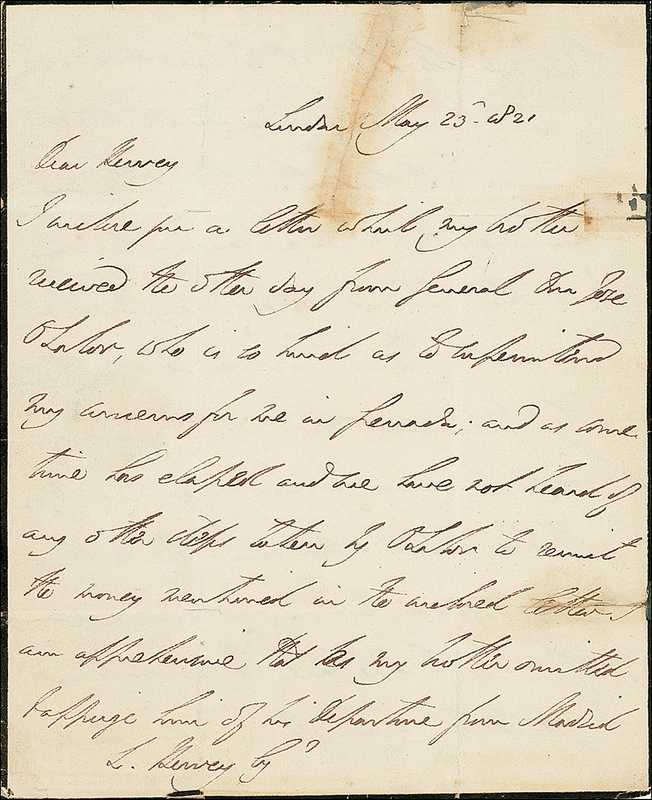 London May 23d. 1821
Dear Hervey
I enclose you a letter which my brother
received the other day from General Don Jose
O'Lalor, who is so kind as to superintend
my concerns for me in Grenada; and as some
time has elapsed and we have not heard of
any other steps taken by O'Lalor to remit
the money mentioned in the enclosed letter I
am apprehensive that as my brother omitted
to apprize him of his departure from Madrid
L. Hervey Esqr